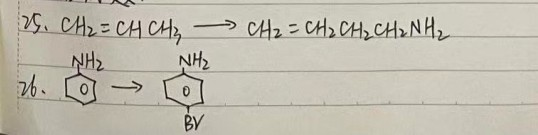 25. CH₂=CHCH₃ ⟶ CH₂=CH₂CH₂CH₂NH₂
NH₂ NH₂
26. →
Br